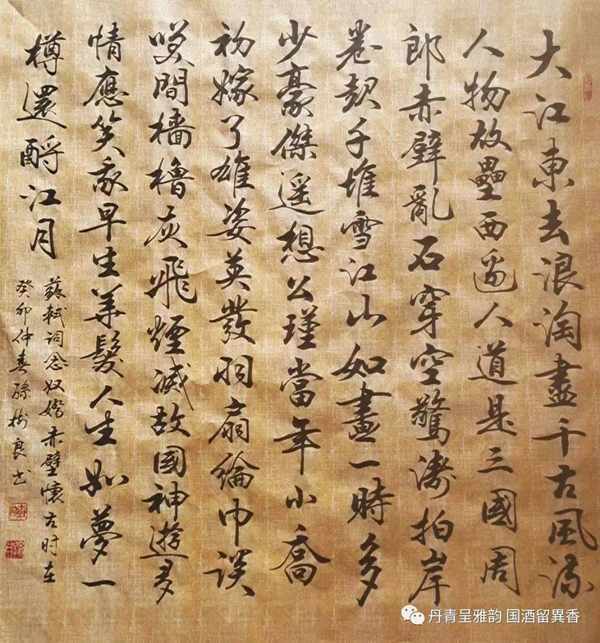 大江東去浪淘盡千古風流
人物故壘西邊人道是三國周
郎赤壁亂石穿空驚濤拍岸
卷起千堆雪江山如畫一時多
少豪傑遙想公瑾當年小喬
初嫁了雄姿英發羽扇綸巾談
笑間檣櫓灰飛煙滅故國神遊多
情應笑我早生華髮人生如夢一
樽還酹江月
蘇軾詞念奴嬌赤壁懷古時在
癸卯仲春孫樹良书
丹青呈雅韵 国酒留異香